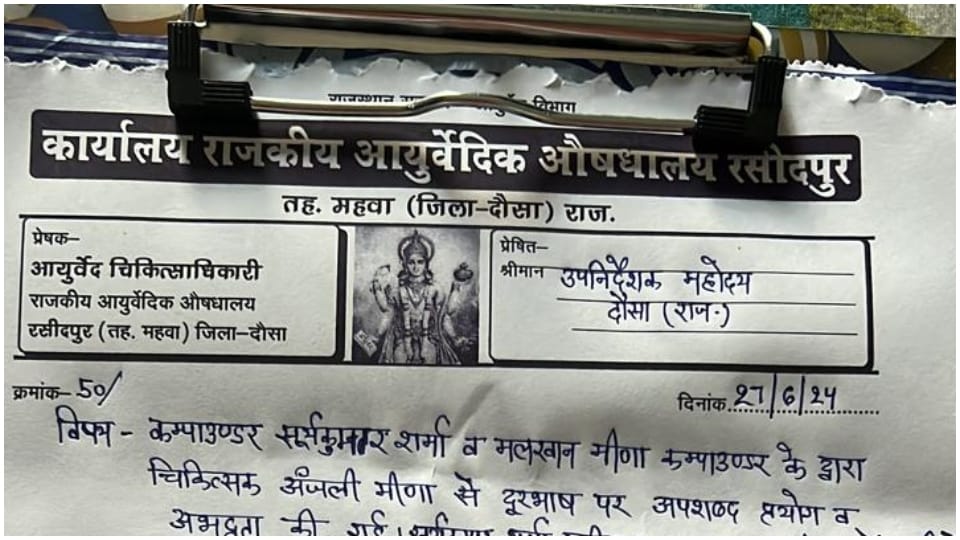 राजस्थान विभाग
कार्यालय राजकीय आयुर्वेदिक औषधालय रसीदपुर
तह. महवा (जिला-दौसा) राज.
प्रेषक-
आयुर्वेद चिकित्साधिकारी
राजकीय आयुर्वेदिक औषधालय
रसीदपुर (तह. महवा) जिला-दौसा
प्रेषित-
श्रीमान उपनिदेशक महोदय
दौसा (राज.)
क्रमांक- 50/
दिनांक 27/6/24
विषय - कम्पाउण्डर सूर्यकुमार शर्मा व मलखान मीणा कम्पाउण्डर के द्वारा
चिकित्सक अंजली मीणा से दूरभाष पर अपशब्द प्रयोग व
अभद्रता की गई।